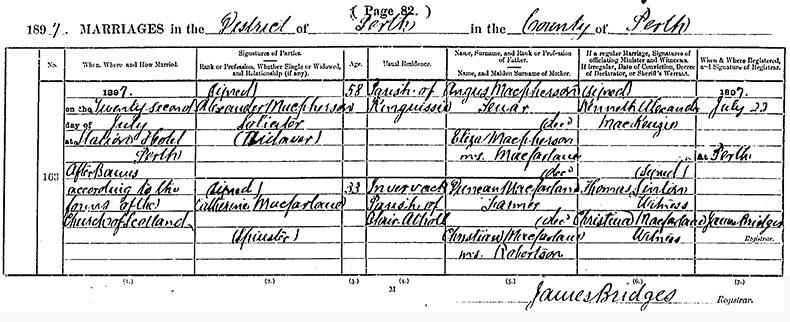 ( Page 82. )
1897. MARRIAGES in the District of Perth in the County of Perth
No.
When, Where and How Married.
Signatures of Parties.
Rank or Profession, Whether Single or Widowed, and Relationship (if any).
Age.
Usual Residence.
Name, Surname, and Rank or Profession of Father.
Name, and Maiden Surname of Mother.
If a regular Marriage, Signatures of officiating Minister and Witnesses.
If irregular, Date of Conviction, Decree of Declarator, or Sheriff's Warrant.
When & Where Registered, and Signature of Registrar.
163
1897.
on the Twenty second
day of July
at Station Hotel
Perth
After Banns
according to the
forms of the
Church of Scotland
(Signed)
Alexander Macpherson
Solicitor
(Widower)
(Signed)
Catherine Macfarland
(Spinster)
58
33
Parish of
Kingussie
Invervack
Parish of
Blair Atholl
Angus Macpherson
(dec)
Eliza Macpherson
m.s. Macfarlane
(dec)
Duncan Macfarland
Farmer
(dec)
Christian Macfarland
m.s. Robertson
(Signed)
Kenneth Alexander
MacKenzie
(Signed)
Thomas Sinton
Witness
Christina Macfarland
Witness
1897.
July 23
at Perth
James Bridges
Registrar.
(1.) (2.) (3.) (4.) (5.) (6.) (7.)
M
James Bridges Registrar.